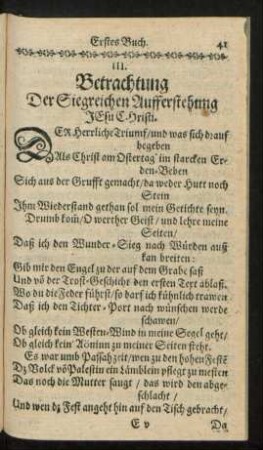 Erstes Buch. 41
III.
Betrachtung
Der Siegreichen Aufferstehung
JEsu CHristi.
DER Herrliche Triumf/und was sich drauf
begeben
Als Christ am Ostertag' im starcken Er-
den-Beben
Sich aus der Grufft gemacht/da weder Hutt noch
Stein
Ihm Wiederstand gethan sol mein Getichte seyn.
Drumb kom̃/O werther Geist/ und lehre meine
Seiten/
Daß ich den Wunder-Sieg nach Würden auß
kan breiten:
Gib mir den Engel zu der auf dem Grabe saß
Und võ der Trost-Geschicht den ersten Text ablaß.
Wo du die Feder führst/so darf ich kühnlich trawen
Daß ich den Tichter-Port nach wünschen werde
schawen/
Ob gleich kein Westen-Wind in meine Segel geht/
Ob gleich kein Aonium zu meiner Seiten steht.
Es war umb Passahzeit/wen zu den hohen Festẽ
Dz Volck võ Palestin ein Lämblein pflegt zu mesten
Das noch die Mutter saugt/ das wird den abge-
schlacht/
Und wen dz Fest angeht hin auf den Tisch gebracht/
E v Da